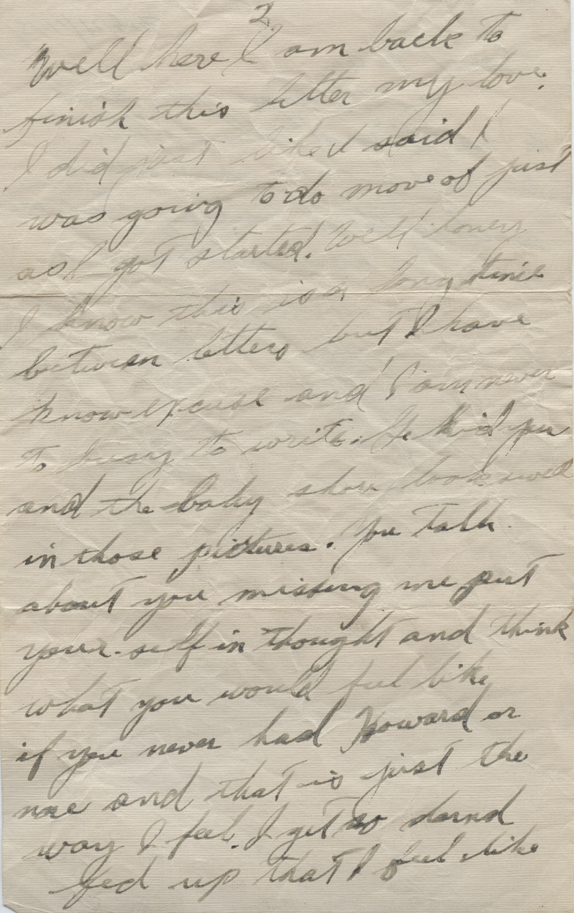 2
Well here I am back to
finish this letter my love.
I did just like I said I
was going to do move of just
as I got started. Well honey
I know this is a long time
between letters but I have
know excuse and I am never
to busy to write. Je kid you
and the baby shur look swell
in those pictures. You talk
about you missing me put
your-self in thought and think
what you would feel like
if you never had Howard or
me and that is just the
way I feel. I get so darnd
fed up that I feel like